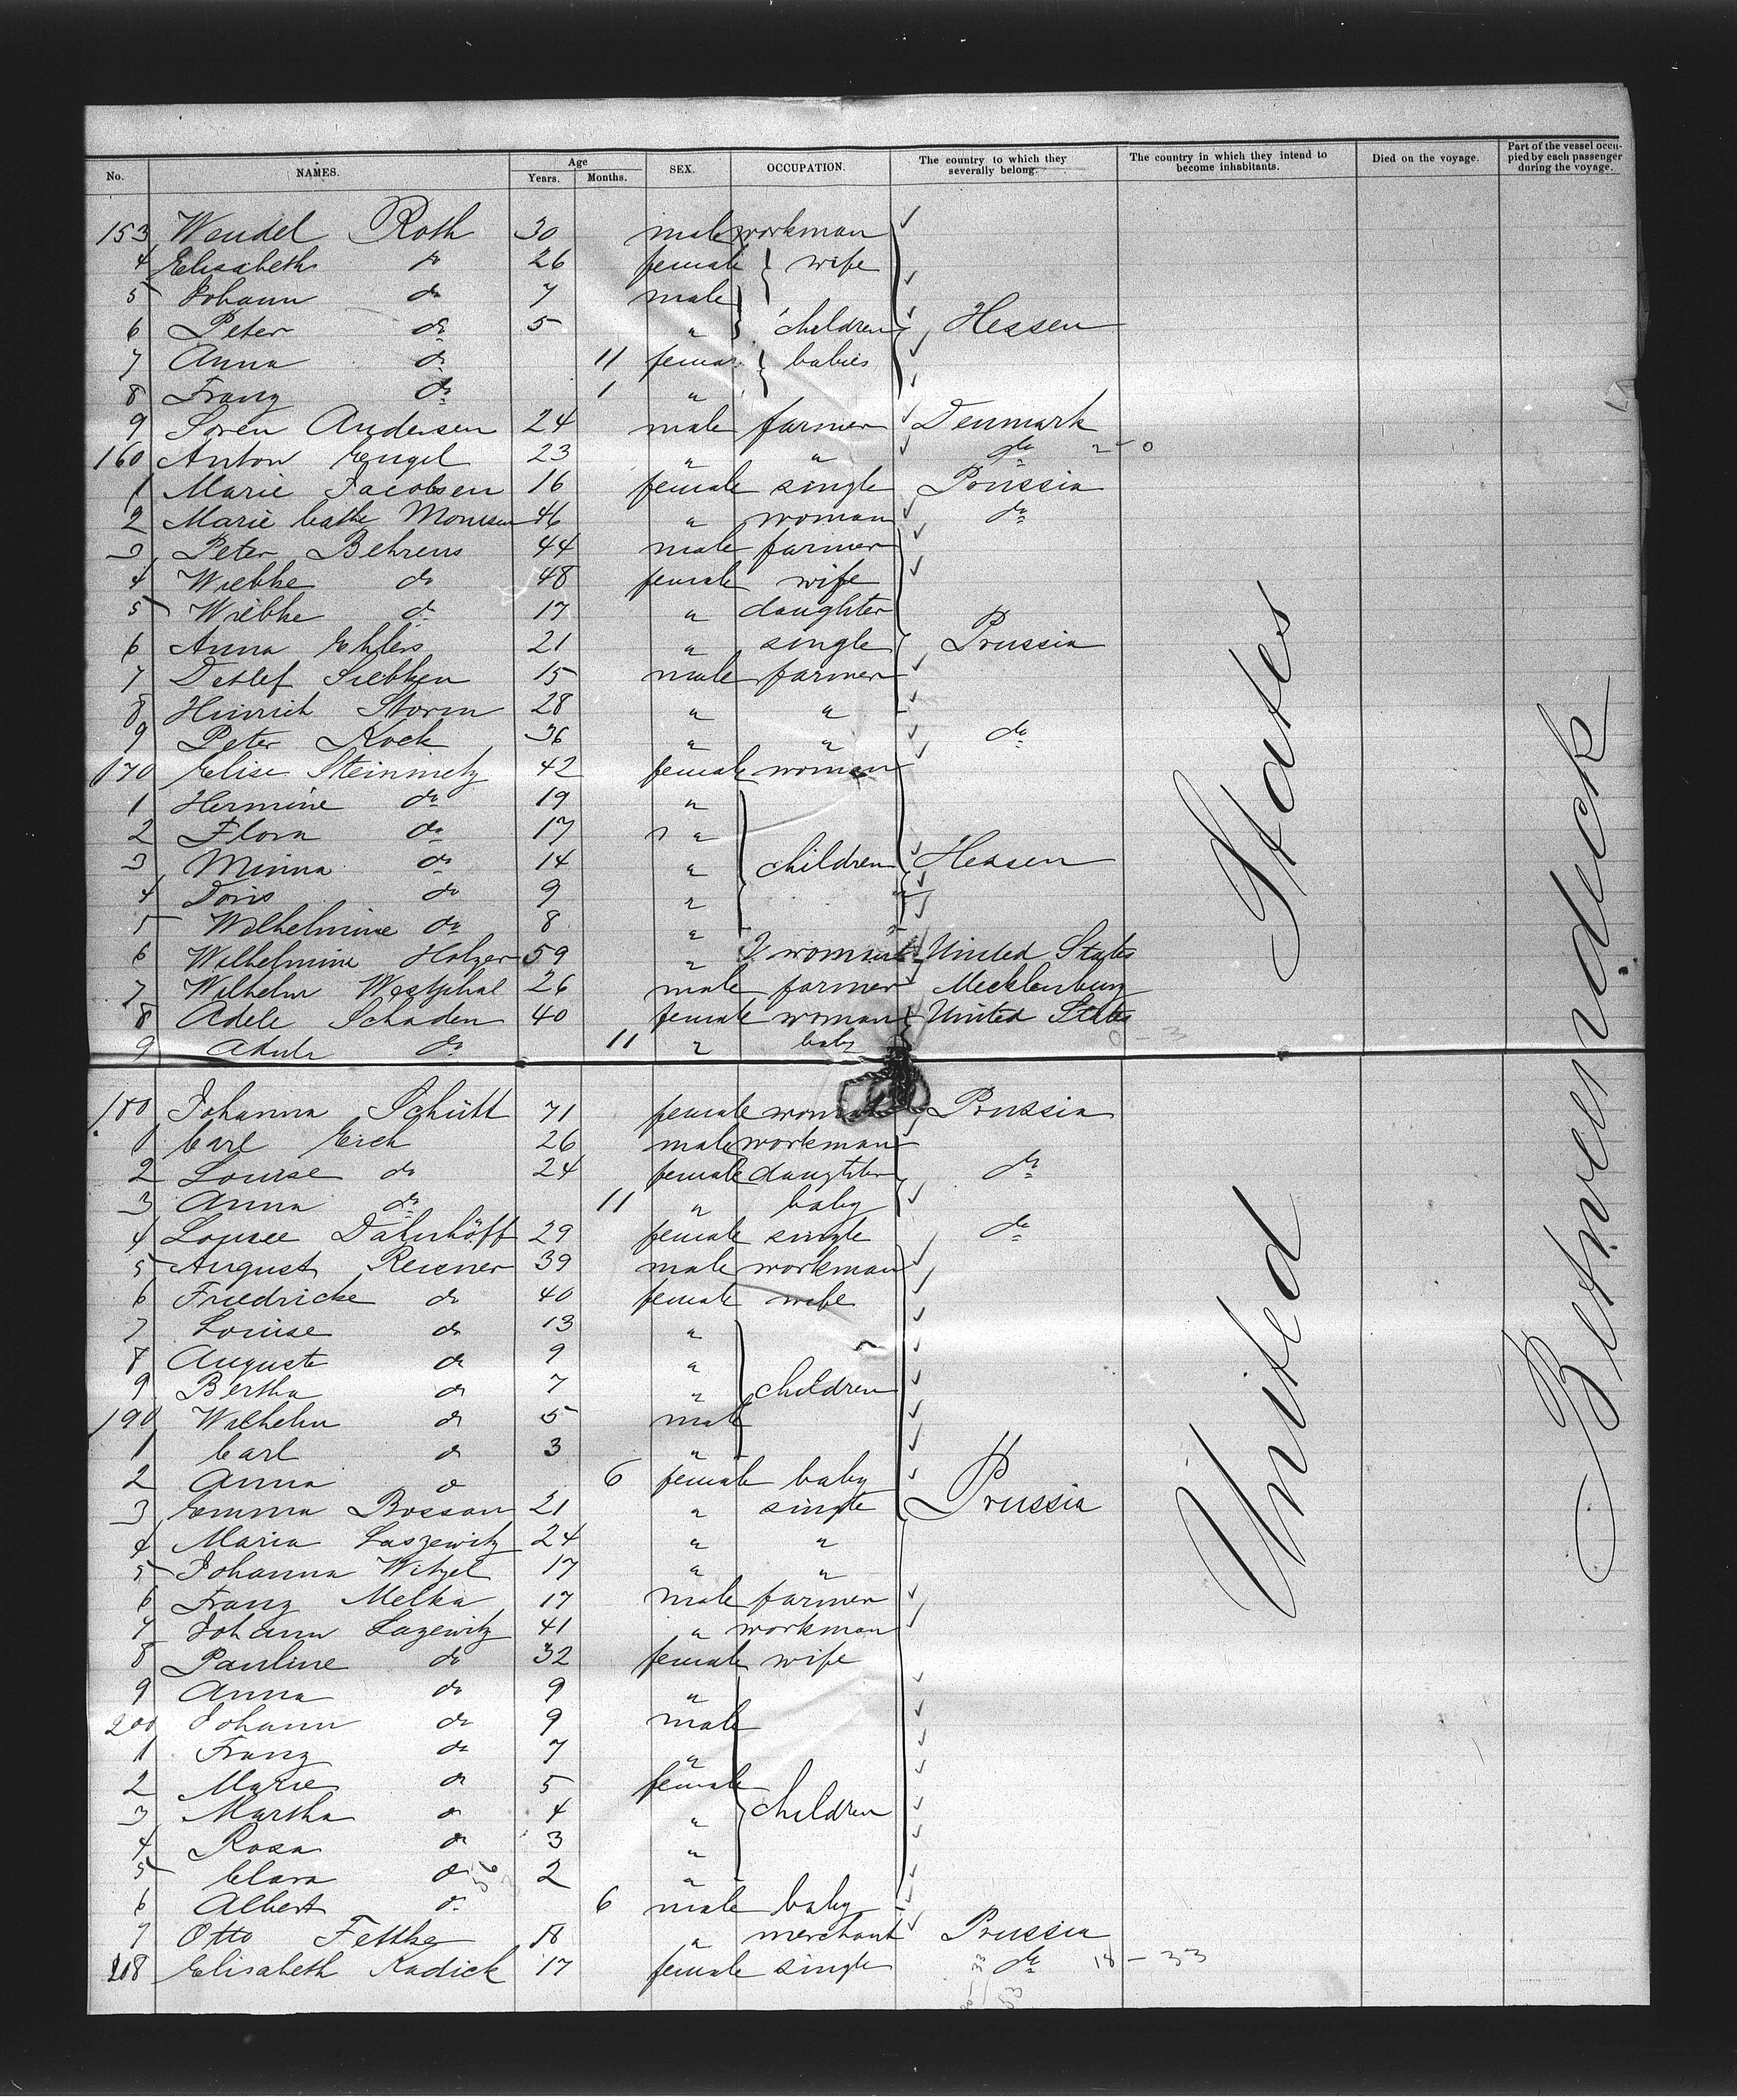 No. NAMES. Age Years. Months. SEX. OCCUPATION. The country to which they severally belong. The country in which they intend to become inhabitants. Died on the voyage. Part of the vessel occupied by each passenger during the voyage.
153 Wendel Roth 30 male workman
4 Elisabeth do 26 female wife
5 Johann do 7 male
6 Peter do 5 " children Hessen
7 Anna do 11 female babies
8 Franz do 1 "
9 Soren Andersen 24 male farmer Denmark
160 Anton Engel 23 " " do
1 Marie Jacobsen 16 female single Prussia
2 Marie Cathe Monsen 46 " woman do
3 Peter Behrens 44 male farmer
4 Wiebke do 48 female wife
5 Wiebke do 17 " daughter
6 Anna Ehlers 21 " single Prussia
7 Detlef Siebken 15 male farmer
8 Hinrich Storm 28 " "
9 Peter Kock 36 " " do
170 Elise Steinmetz 42 female woman
1 Hermine do 19 "
2 Flora do 17 "
3 Minna do 14 " children Hessen
4 Doris do 9 "
5 Wilhelmine do 8 "
6 Wilhelmine Holzer 59 " woman United States
7 Wilhelm Westphal 26 male farmer Mecklenburg
8 Adele Schaden 40 female woman United States
9 Adele do 11 " baby
180 Johanna Schütt 71 female woman Prussia
1 Carl Eick 26 male workman
2 Louise do 24 female daughter do
3 Anna do 11 " baby
4 Louise Dahnhöff 29 female single do
5 August Reisner 39 male workman
6 Friedricke do 40 female wife
7 Louise do 13 "
8 Auguste do 9 "
9 Bertha do 7 " children
190 Wilhelm do 5 male
1 Carl do 3 "
2 Anna do 6 female baby
3 Emma Bossan 21 " single Prussia
4 Maria Laszewitz 24 " "
5 Johanna Witzel 17 " "
6 Franz Melka 17 male farmer
7 Johann Lazewitz 41 " workman
8 Pauline do 32 female wife
9 Anna do 9 "
200 Johann do 9 male
1 Franz do 7 "
2 Marie do 5 female
3 Martha do 4 " children
4 Rosa do 3 "
5 Clara do 2 "
6 Albert do 6 male baby
7 Otto Fethke 18 " merchant Prussia
208 Elisabeth Kadick 17 female single do 18 - 33
United States
Between deck